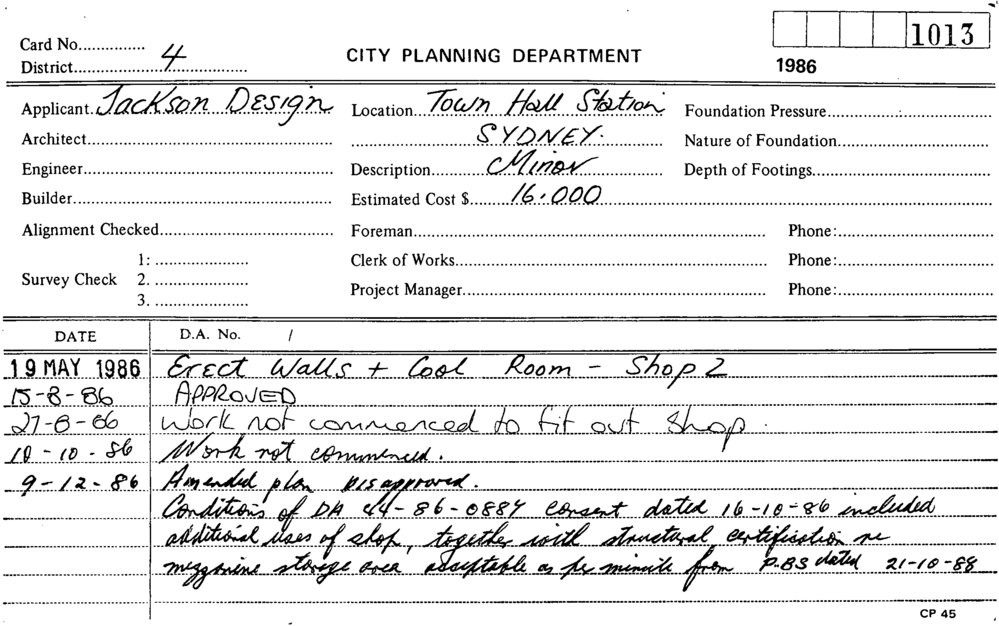 Card No............... 1013
District.......4.......... CITY PLANNING DEPARTMENT 1986
Applicant. Jackson Design Location... Town Hall Station Foundation Pressure
Architect SYDNEY. Nature of Foundation
Engineer Description Minor Depth of Footings
Builder Estimated Cost $ 16.000
Alignment Checked Foreman Phone:
1: Clerk of Works Phone:
Survey Check 2.
3. Project Manager Phone:
DATE D.A. No. /
19 MAY 1986 Erect Walls + Cool Room - Shop 2
15-8-86 APPROVED
27-8-86 Work not commenced to fit out shop.
10-10-86 Work not commenced.
9-12-86 Amended plan disapproved.
Conditions of DA 44-86-0887 consent dated 16-10-86 included
additional uses of shop, together with structural certification re
mezzanine storage area acceptable as per minute from P.BS dated 21-10-88
CP 45